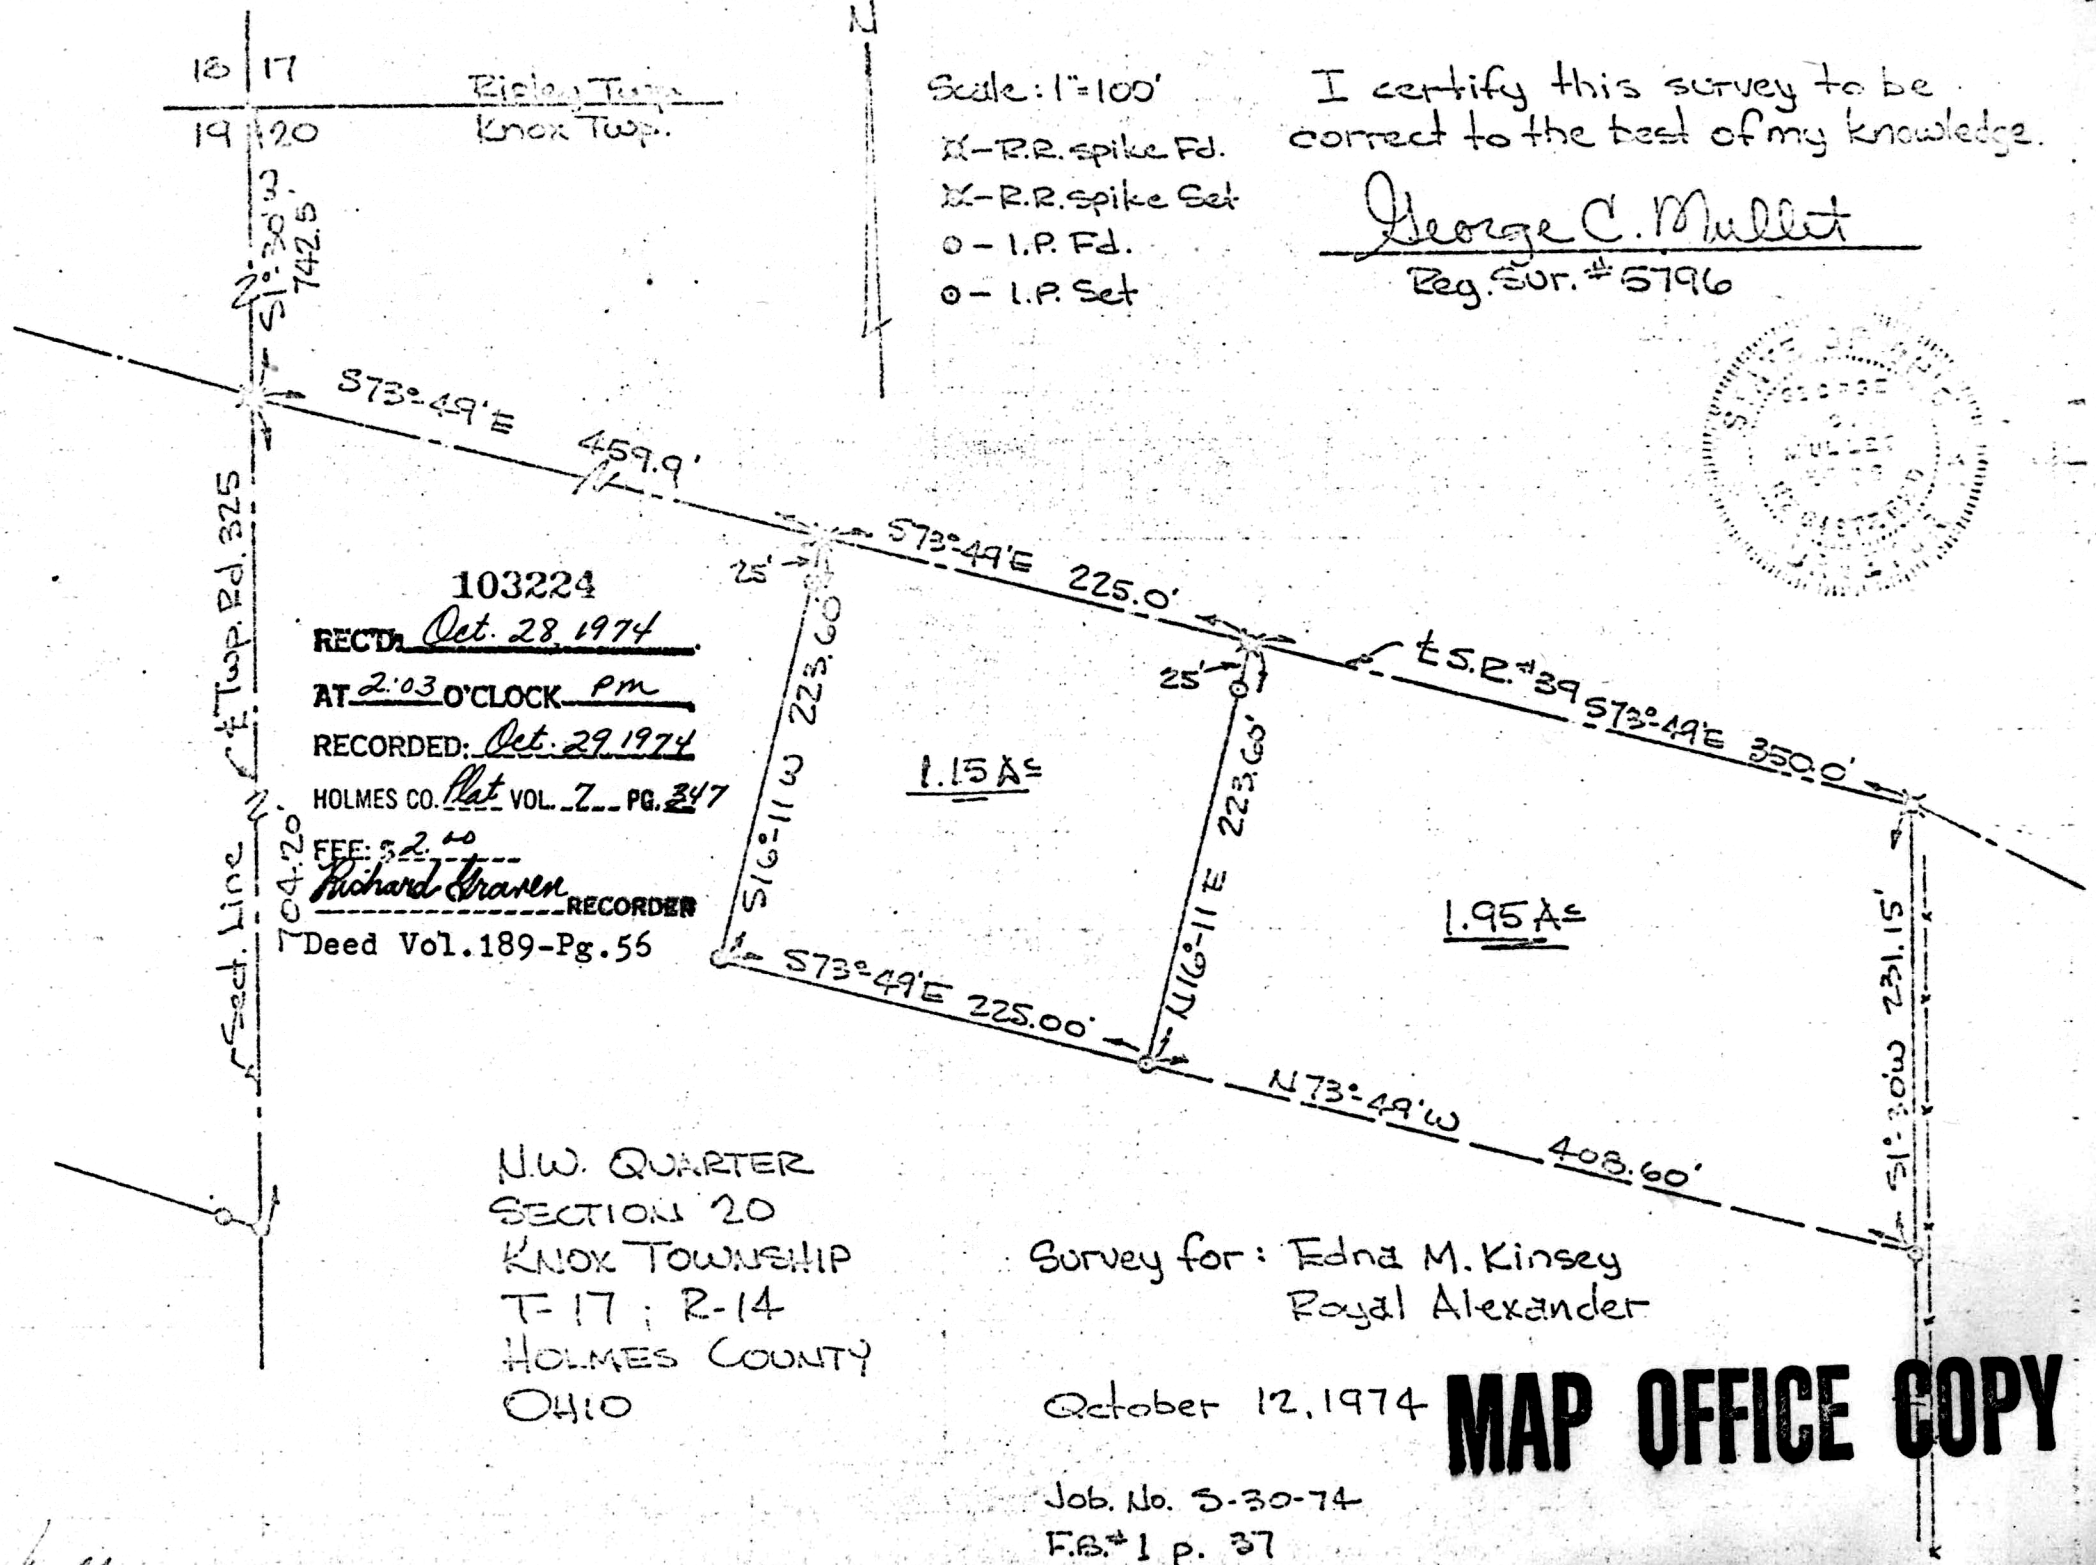 18 17
Ripley Twp.
19 20
Knox Twp.
N
Scale: 1"=100'
R.R. spike Fd.
R.R. spike Set
o - I.P. Fd.
o - I.P. Set
I certify this survey to be
correct to the best of my knowledge.
George C. Mullet
Reg. Sur. # 5796
STATE OF OHIO
GEORGE
C.
MULLET
REGISTERED
S1°-30'W
742.5'
S73°-49'E
459.9'
S73°-49'E 225.0'
25'
25'
℄ S.R. #39
S73°-49'E 350.0'
Sect. Line & ℄ Twp. Rd. 325
704.20'
103224
REC'D. Oct. 28, 1974
AT 2:03 O'CLOCK PM
RECORDED: Oct. 29 1974
HOLMES CO. Plat VOL. 7 PG. 347
FEE: $2.00
Richard Graven RECORDER
Deed Vol.189-Pg.56
S16°-11 W 223.60'
1.15 Ac
N16°-11 E 223.60'
1.95 Ac
S1°-30W 231.15'
S73°-49'E 225.00'
N73°-49'W 408.60'
N.W. QUARTER
SECTION 20
KNOX TOWNSHIP
T-17; R-14
HOLMES COUNTY
OHIO
Survey for: Edna M. Kinsey
Royal Alexander
October 12, 1974
MAP OFFICE COPY
Job. No. S-30-74
F.B.#1 p. 37